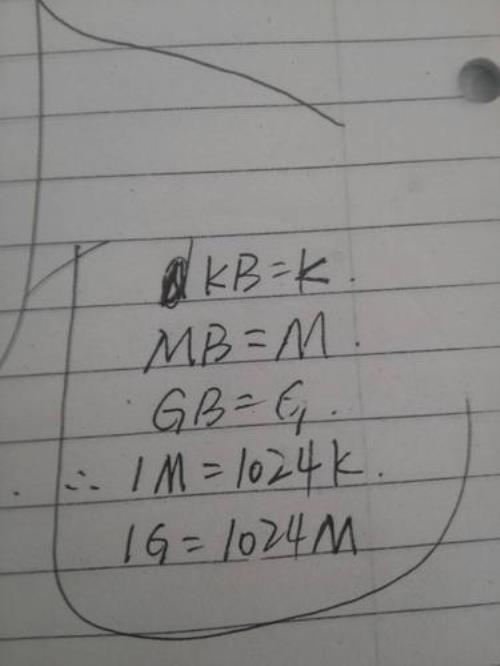 KB=K.
MB=M.
GB=G.
∴ 1M=1024K.
1G=1024M